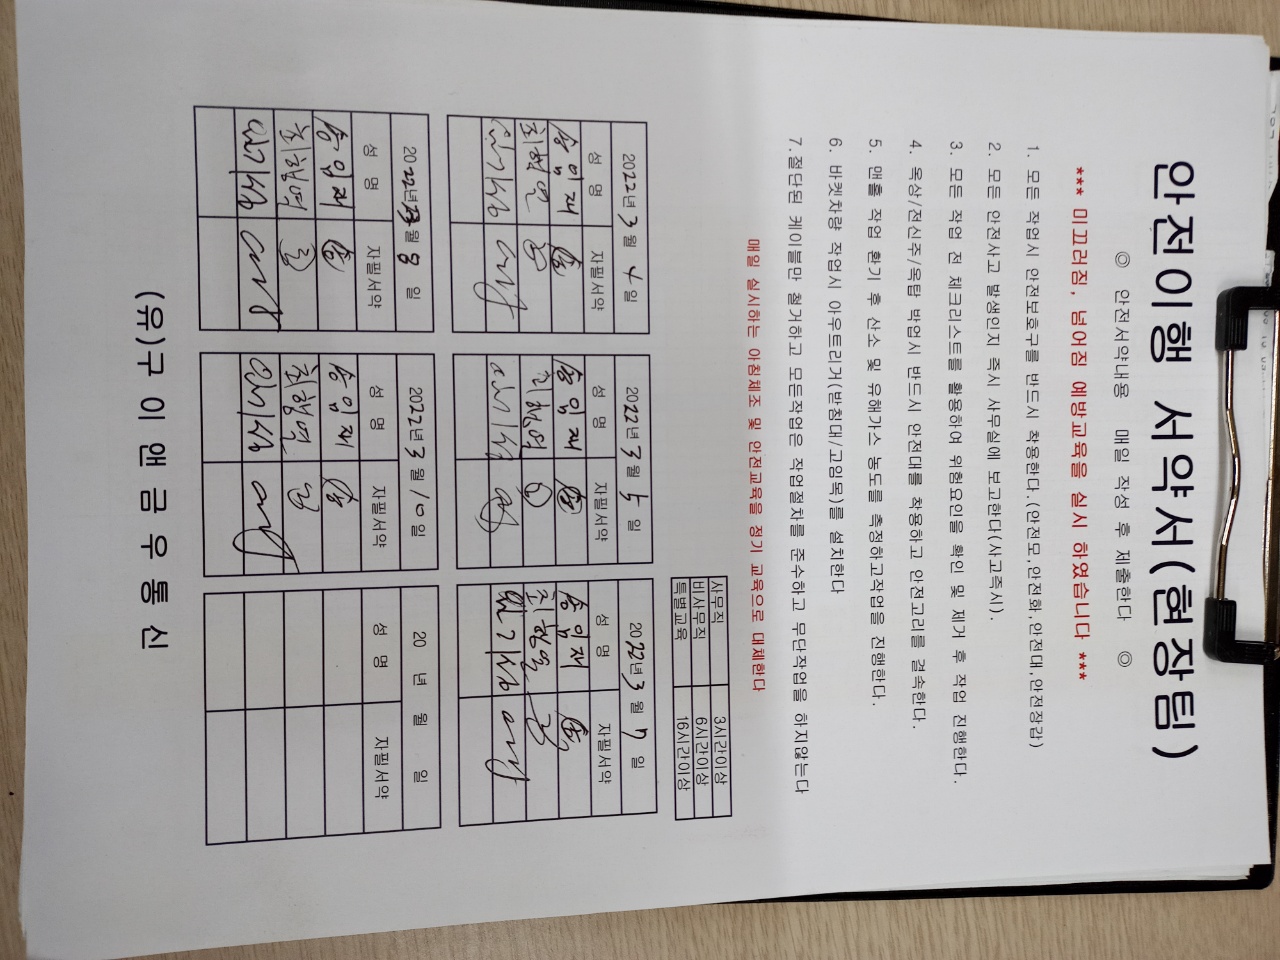 안전이행 서약서(현장팀)
◎ 안전서약내용 매일 작성 후 제출한다 ◎
*** 미끄러짐, 넘어짐 예방교육을 실시 하였습니다 ***
1. 모든 작업시 안전보호구를 반드시 착용한다.(안전모,안전화,안전대,안전장갑)
2. 모든 안전사고 발생인지 즉시 사무실에 보고한다(사고즉시).
3. 모든 작업 전 체크리스트를 활용하여 위험요인을 확인 및 제거 후 작업 진행한다.
4. 옥상/전신주/옥탑 박업시 반드시 안전대를 착용하고 안전고리를 결속한다.
5. 맨홀 작업 환기 후 산소 및 유해가스 농도를 측정하고작업을 진행한다.
6. 바켓차량 작업시 아우트리거(받침대/고임목)를 설치한다
7.절단된 케이블만 철거하고 모든작업은 작업절차를 준수하고 무단작업을 하지않는다
매일 실시하는 아침체조 및 안전교육을 정기 교육으로 대체한다
사무직 3시간이상
비사무직 6시간이상
특별교육 16시간이상
2022년 3월 4일 2022년 3월 5일 2022년 3월 7일
성 명 자필서약 성 명 자필서약 성 명 자필서약
송임재 송 송임재 송 송임재 송
2022년 3월 8일 2022년 3월 10일 20 년 월 일
성 명 자필서약 성 명 자필서약 성 명 자필서약
송임재 송 송임재 송
(유)구이앤금우통신